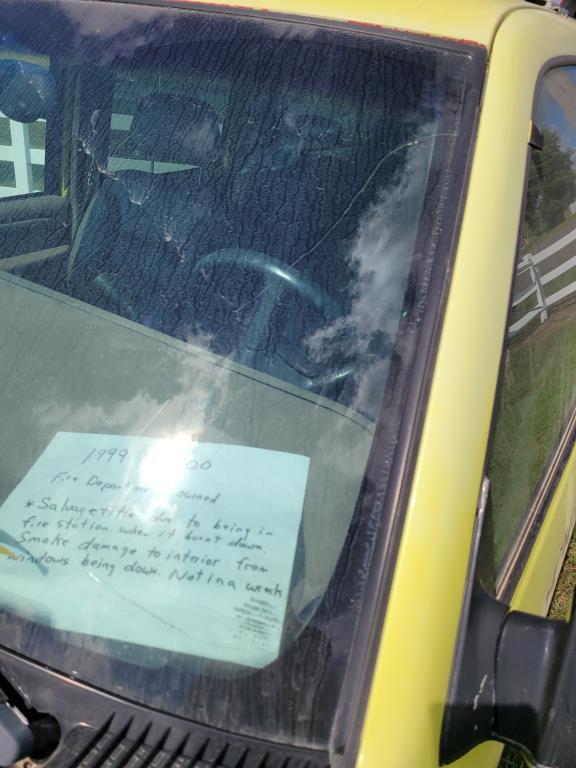 1999 00
Fire Department owned
* Salvage title due to being in
fire station when it burnt down.
Smoke damage to interior from
windows being down. Not in a wreck